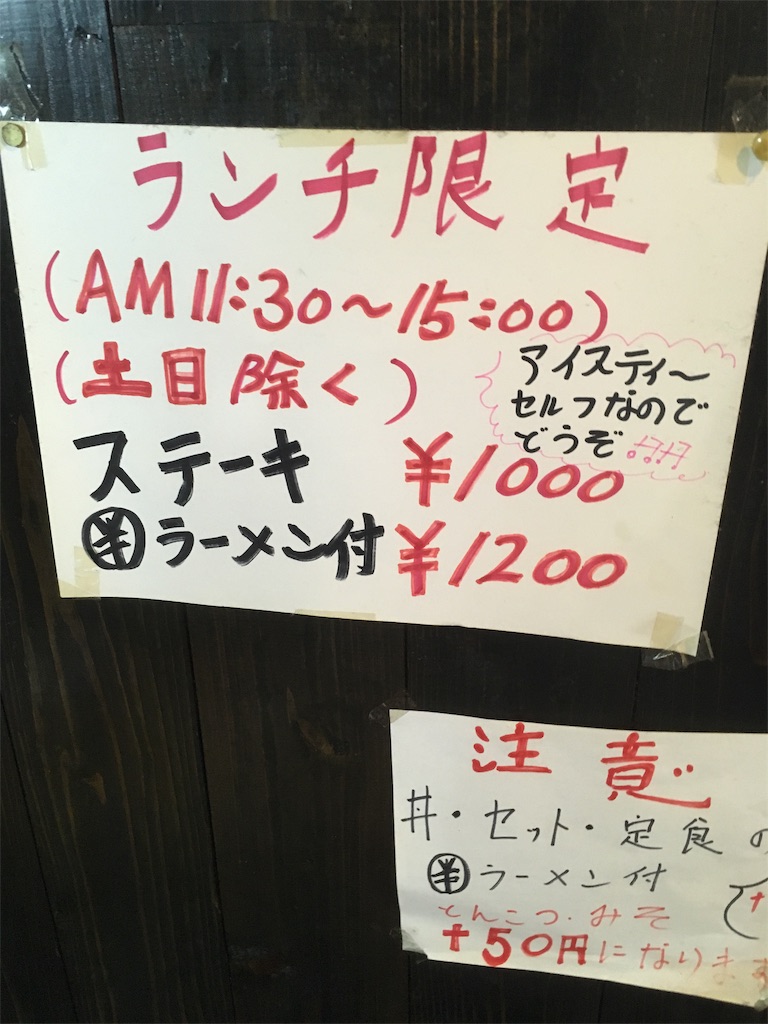 ランチ限定
(AM11:30~15:00)
(土日除く)
アイスティ~
セルフなので
どうぞ
ステーキ ¥1000
半ラーメン付 ¥1200
注意
丼・セット・定食の
半ラーメン付
とんこつ・みそ
+50円になります